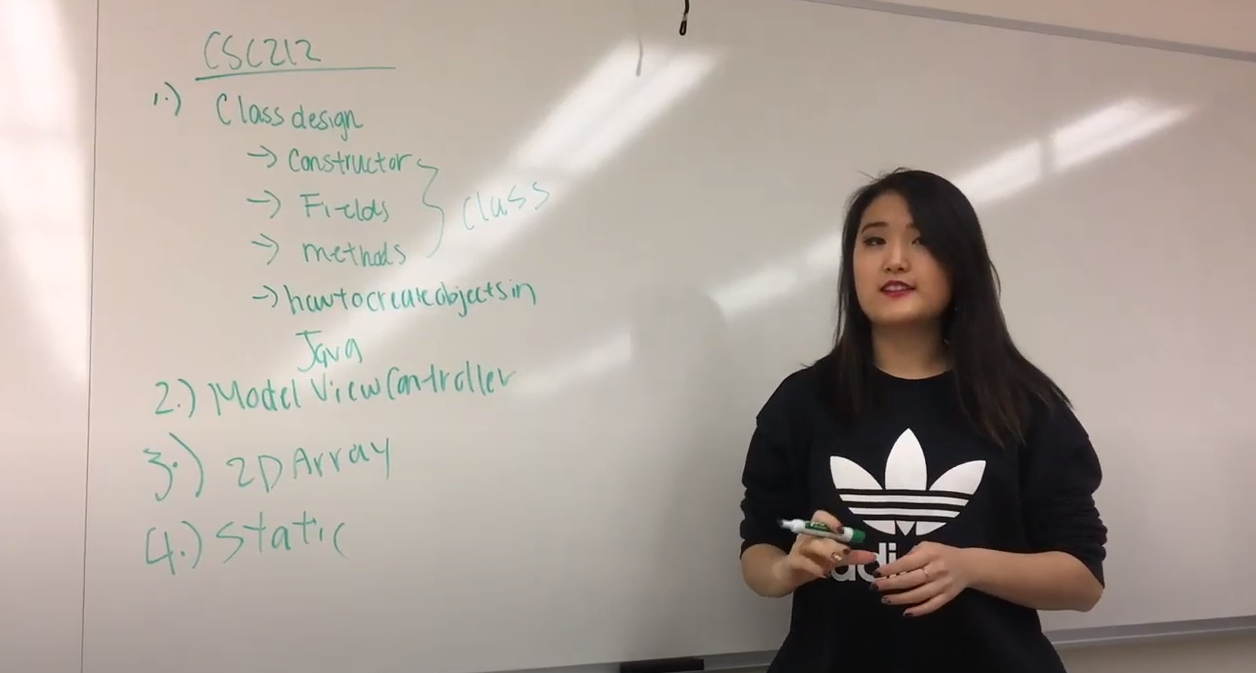 CSC212
1.) Class design
→ Constructor
→ Fields
→ methods
class
→ how to create objects in
Java
2.) Model View Controller
3.) 2D Array
4.) Static
adi